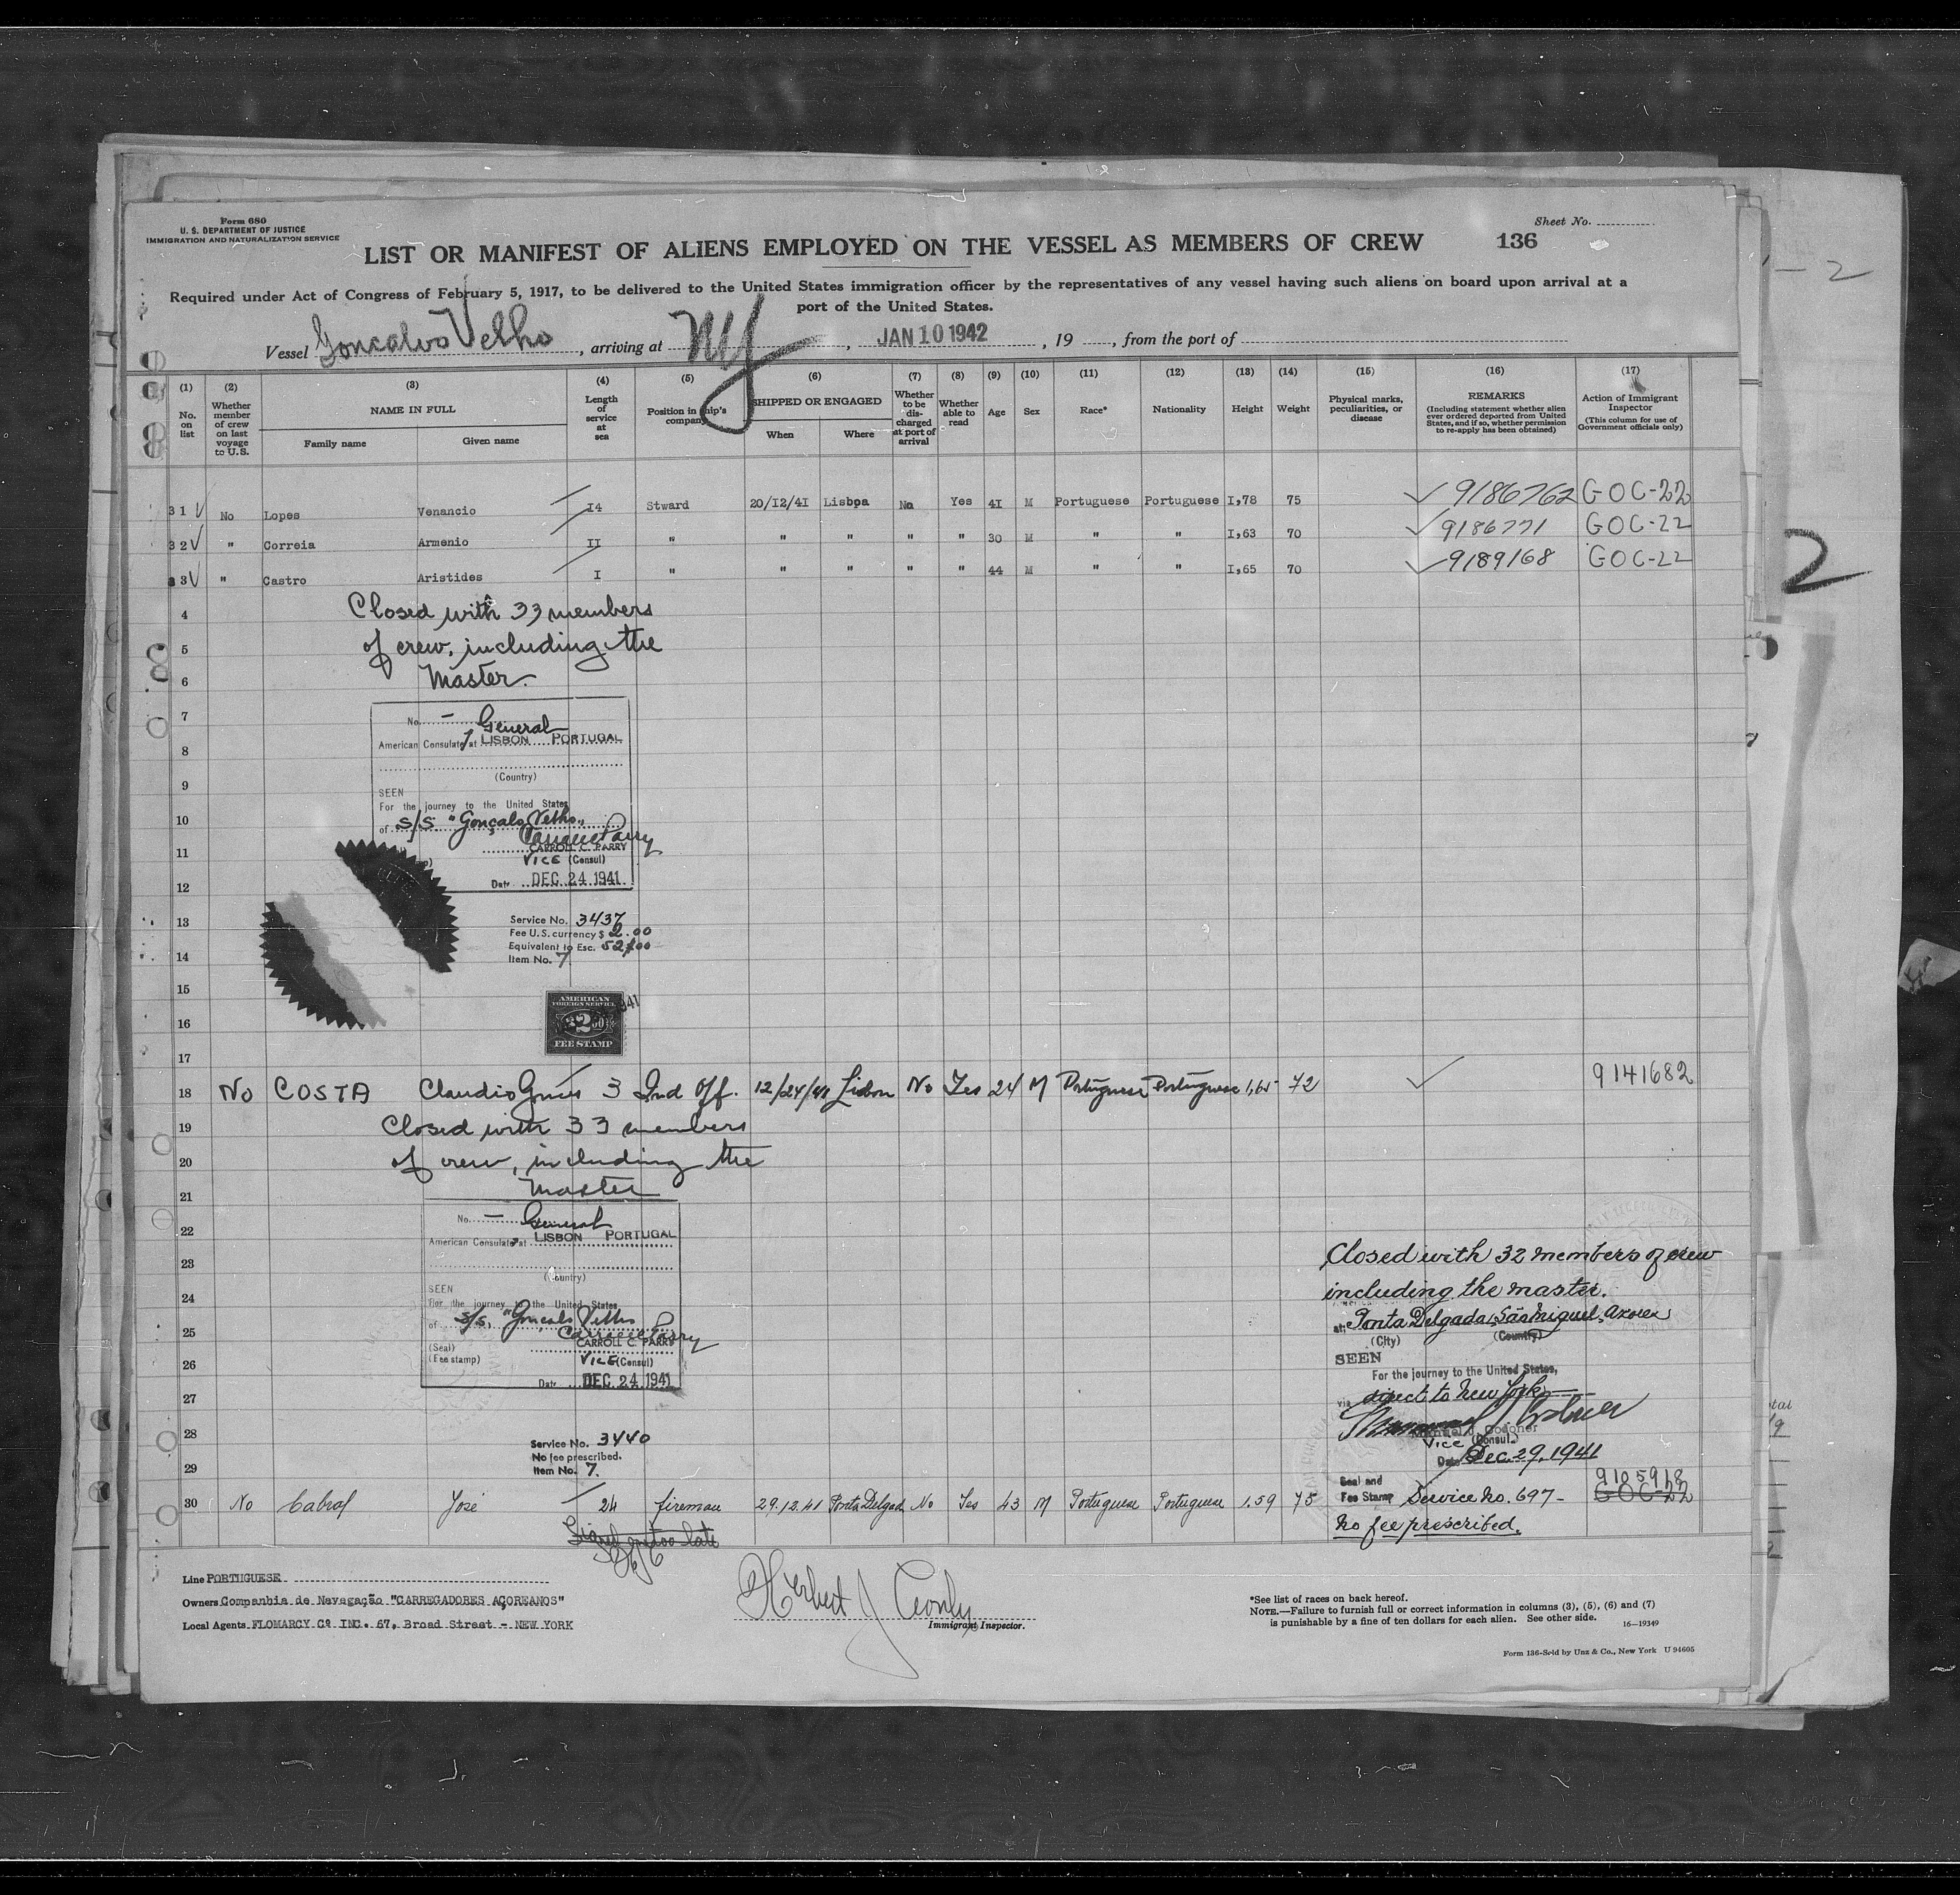 Form 680
U. S. DEPARTMENT OF JUSTICE
IMMIGRATION AND NATURALIZATION SERVICE
Sheet No.
LIST OR MANIFEST OF ALIENS EMPLOYED ON THE VESSEL AS MEMBERS OF CREW 136
Required under Act of Congress of February 5, 1917, to be delivered to the United States immigration officer by the representatives of any vessel having such aliens on board upon arrival at a
port of the United States.
Vessel Goncalvo Velho, arriving at NY, JAN 10 1942, 19 , from the port of
(1) No. on list
(2) Whether member of crew on last voyage to U.S.
(3) NAME IN FULL Family name Given name
(4) Length of service at sea
(5) Position in ship's company
(6) SHIPPED OR ENGAGED When Where
(7) Whether to be discharged at port of arrival
(8) Whether able to read
(9) Age
(10) Sex
(11) Race*
(12) Nationality
(13) Height
(14) Weight
(15) Physical marks, peculiarities, or disease
(16) REMARKS (Including statement whether alien ever ordered deported from United States, and if so, whether permission to re-apply has been obtained)
(17) Action of Immigrant Inspector (This column for use of Government officials only)
31 √ No Lopes Venancio 14 Stward 20/12/41 Lisboa No Yes 41 M Portuguese Portuguese I,78 75 ✓ 9186762 GOC-22
32 √ " Correia Armenio II " " " " " 30 M " " I,63 70 ✓ 9186771 GOC-22
33 √ " Castro Aristides I " " " " " 44 M " " I,65 70 ✓ 9189168 GOC-22
4 Closed with 33 members
5 of crew, including the
6 Master.
7 No. — General
8 American Consulate at LISBON PORTUGAL
(Country)
9 SEEN
For the journey to the United States
10 of S/S "Gonçalo Velho"
11 CARROLL C. PARRY
VICE (Consul)
12 Date DEC 24 1941
13 Service No. 3437
Fee U.S. currency $ 2.00
Equivalent to Esc. 52$00
14 Item No. 7
15 AMERICAN FOREIGN SERVICE
16 $2.00 FEE STAMP
17
18 No COSTA Claudio 3 2nd Off. 12/24/41 Lisbon No Yes 24 M Portuguese Portuguese 1,65 72 ✓ 9141682
19 Closed with 33 members
20 of crew, including the
21 Master
22 No. — General
American Consulate at LISBON PORTUGAL
23 (Country)
24 SEEN
For the journey to the United States
25 of S/S, "Gonçalo Velho
CARROLL C. PARRY
(Seal)
26 (Fee stamp) VICE (Consul)
Date DEC 24 1941
27
28 Service No. 3440
No fee prescribed.
29 Item No. 7.
Closed with 32 members of crew
including the master.
at Ponta Delgada, São Miguel, Azores
(City) (Country)
SEEN
For the journey to the United States,
via direct to New York
Vice (Consul)
Date Dec. 29, 1941
Seal and
Fee Stamp Service No. 697-
No fee prescribed.
30 No Cabral José 24 fireman 29.12.41 Ponta Delgada No Yes 43 M Portuguese Portuguese 1.59 75 9105918 GOC-22
Signed on too late
Line PORTUGUESE
Owners Companhia de Navegação "CARREGADORES AÇOREANOS"
Local Agents FLOMARCY Cº INC. 67, Broad Street - NEW YORK
Herbert J
Immigrant Inspector.
*See list of races on back hereof.
NOTE.—Failure to furnish full or correct information in columns (3), (5), (6) and (7)
is punishable by a fine of ten dollars for each alien. See other side.
16—19349
Form 136-Sold by Unz & Co., New York U 94605
— 2
2